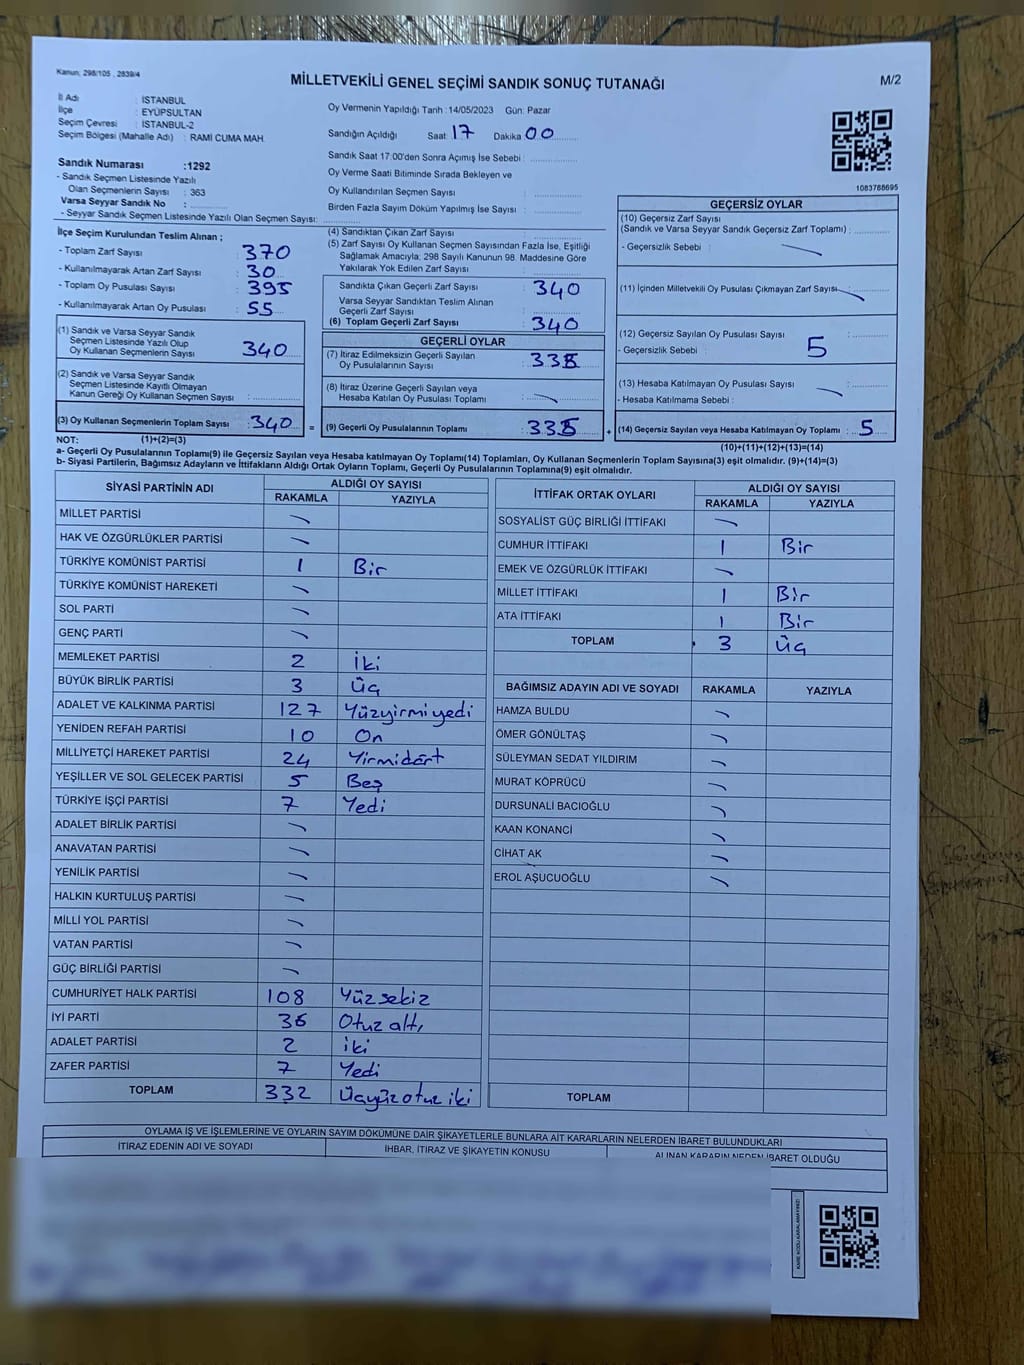 Kanun; 298/105 , 2839/4
MİLLETVEKİLİ GENEL SEÇİMİ SANDIK SONUÇ TUTANAĞI
M/2
İl Adı : İSTANBUL
İlçe : EYÜPSULTAN
Seçim Çevresi : İSTANBUL-2
Seçim Bölgesi (Mahalle Adı) : RAMİ CUMA MAH
Sandık Numarası :1292
- Sandık Seçmen Listesinde Yazılı
Olan Seçmenlerin Sayısı : 363
Varsa Seyyar Sandık No :
- Seyyar Sandık Seçmen Listesinde Yazılı Olan Seçmen Sayısı:
Oy Vermenin Yapıldığı Tarih :14/05/2023 Gün: Pazar
Sandığın Açıldığı Saat 17 Dakika 00
Sandık Saat 17:00'den Sonra Açımış İse Sebebi :
Oy Verme Saati Bitiminde Sırada Bekleyen ve
Oy Kullandırılan Seçmen Sayısı :
Birden Fazla Sayım Döküm Yapılmış İse Sayısı :
1083788695
İlçe Seçim Kurulundan Teslim Alınan ;
- Toplam Zarf Sayısı : 370
- Kullanılmayarak Artan Zarf Sayısı : 30
- Toplam Oy Pusulası Sayısı : 395
- Kullanılmayarak Artan Oy Pusulası : 55
(1) Sandık ve Varsa Seyyar Sandık
Seçmen Listesinde Yazılı Olup
Oy Kullanan Seçmenlerin Sayısı 340
(2) Sandık ve Varsa Seyyar Sandık
Seçmen Listesinde Kayıtlı Olmayan
Kanun Gereği Oy Kullanan Seçmen Sayısı :
(3) Oy Kullanan Seçmenlerin Toplam Sayısı :340
(4) Sandıktan Çıkan Zarf Sayısı :
(5) Zarf Sayısı Oy Kullanan Seçmen Sayısından Fazla İse, Eşitliği
Sağlamak Amacıyla; 298 Sayılı Kanunun 98. Maddesine Göre
Yakılarak Yok Edilen Zarf Sayısı :
Sandıkta Çıkan Geçerli Zarf Sayısı : 340
Varsa Seyyar Sandıktan Teslim Alınan
Geçerli Zarf Sayısı :
(6) Toplam Geçerli Zarf Sayısı : 340
GEÇERLİ OYLAR
(7) İtiraz Edilmeksizin Geçerli Sayılan
Oy Pusulalarının Sayısı : 335
(8) İtiraz Üzerine Geçerli Sayılan veya
Hesaba Katılan Oy Pusulası Toplamı :
= (9) Geçerli Oy Pusulalarının Toplamı : 335
GEÇERSİZ OYLAR
(10) Geçersiz Zarf Sayısı
(Sandık ve Varsa Seyyar Sandık Geçersiz Zarf Toplamı) :
- Geçersizlik Sebebi :
(11) İçinden Milletvekili Oy Pusulası Çıkmayan Zarf Sayısı
(12) Geçersiz Sayılan Oy Pusulası Sayısı : 5
- Geçersizlik Sebebi :
(13) Hesaba Katılmayan Oy Pusulası Sayısı :
- Hesaba Katılmama Sebebi :
+ (14) Geçersiz Sayılan veya Hesaba Katılmayan Oy Toplamı : 5
NOT: (1)+(2)=(3)
(10)+(11)+(12)+(13)=(14)
a- Geçerli Oy Pusulalarının Toplamı(9) ile Geçersiz Sayılan veya Hesaba katılmayan Oy Toplamı(14) Toplamları, Oy Kullanan Seçmenlerin Toplam Sayısına(3) eşit olmalıdır. (9)+(14)=(3)
b- Siyasi Partilerin, Bağımsız Adayların ve İttifakların Aldığı Ortak Oyların Toplamı, Geçerli Oy Pusulalarının Toplamına(9) eşit olmalıdır.
SİYASİ PARTİNİN ADI ALDIĞI OY SAYISI
RAKAMLA YAZIYLA
MİLLET PARTİSİ
HAK VE ÖZGÜRLÜKLER PARTİSİ
TÜRKİYE KOMÜNİST PARTİSİ 1 Bir
TÜRKİYE KOMÜNİST HAREKETİ
SOL PARTİ
GENÇ PARTİ
MEMLEKET PARTİSİ 2 İki
BÜYÜK BİRLİK PARTİSİ 3 Üç
ADALET VE KALKINMA PARTİSİ 127 Yüzyirmiyedi
YENİDEN REFAH PARTİSİ 10 On
MİLLİYETÇİ HAREKET PARTİSİ 24 Yirmidört
YEŞİLLER VE SOL GELECEK PARTİSİ 5 Beş
TÜRKİYE İŞÇİ PARTİSİ 7 Yedi
ADALET BİRLİK PARTİSİ
ANAVATAN PARTİSİ
YENİLİK PARTİSİ
HALKIN KURTULUŞ PARTİSİ
MİLLİ YOL PARTİSİ
VATAN PARTİSİ
GÜÇ BİRLİĞİ PARTİSİ
CUMHURİYET HALK PARTİSİ 108 Yüzsekiz
İYİ PARTİ 36 Otuz altı
ADALET PARTİSİ 2 iki
ZAFER PARTİSİ 7 Yedi
TOPLAM 332 Üçyüzotuz iki
İTTİFAK ORTAK OYLARI ALDIĞI OY SAYISI
RAKAMLA YAZIYLA
SOSYALİST GÜÇ BİRLİĞİ İTTİFAKI
CUMHUR İTTİFAKI 1 Bir
EMEK VE ÖZGÜRLÜK İTTİFAKI
MİLLET İTTİFAKI 1 Bir
ATA İTTİFAKI 1 Bir
TOPLAM 3 üç
BAĞIMSIZ ADAYIN ADI VE SOYADI RAKAMLA YAZIYLA
HAMZA BULDU
ÖMER GÖNÜLTAŞ
SÜLEYMAN SEDAT YILDIRIM
MURAT KÖPRÜCÜ
DURSUNALİ BACIOĞLU
KAAN KONANCİ
CİHAT AK
EROL AŞUCUOĞLU
TOPLAM
OYLAMA İŞ VE İŞLEMLERİNE VE OYLARIN SAYIM DÖKÜMÜNE DAİR ŞİKAYETLERLE BUNLARA AİT KARARLARIN NELERDEN İBARET BULUNDUKLARI
İTİRAZ EDENİN ADI VE SOYADI
İHBAR, İTİRAZ VE ŞİKAYETİN KONUSU
ALINAN KARARIN NEDEN İBARET OLDUĞU